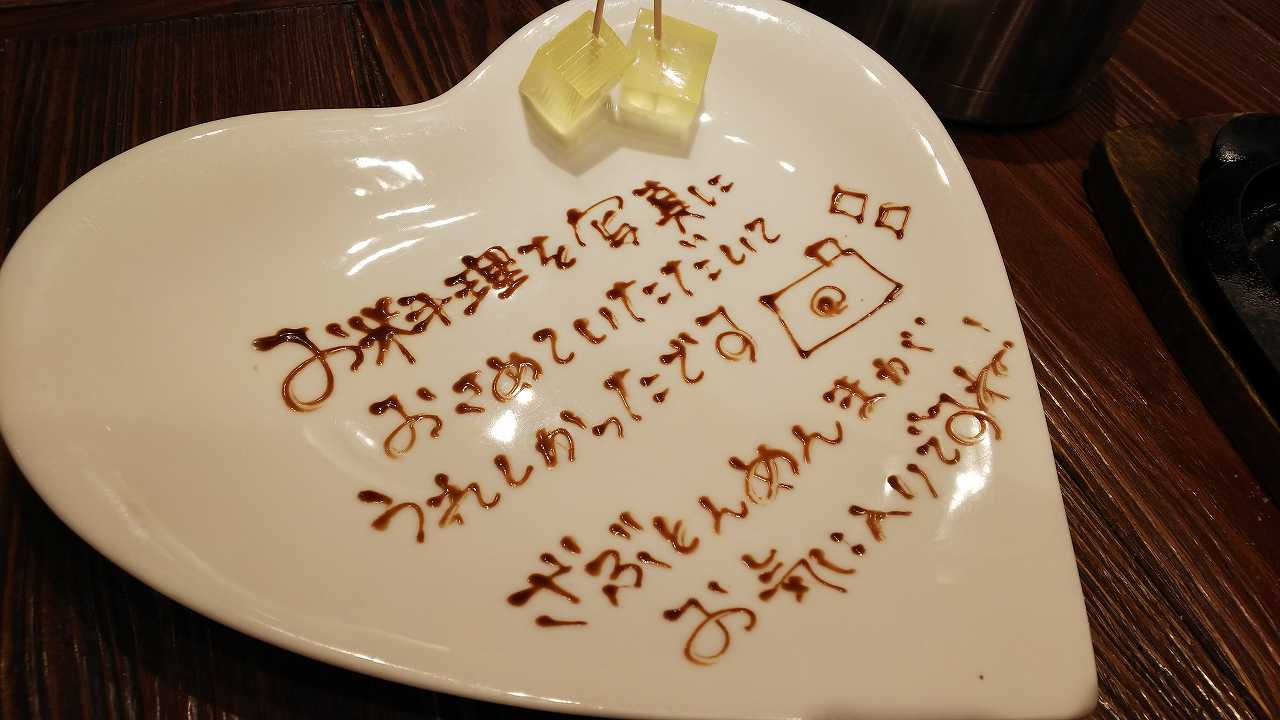 お料理を写真に
おさめていただいて
うれしかったです
ざぶとんめんまが
お気に入りです